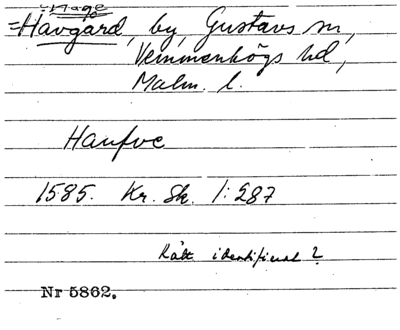 =Hage
=Havgård, by, Gustavs sn,
Vemmenhögs hd,
Malm. l.
Haufve
1585. Kr. Sk. 1:287
Rätt identifierad?
Nr 5862.